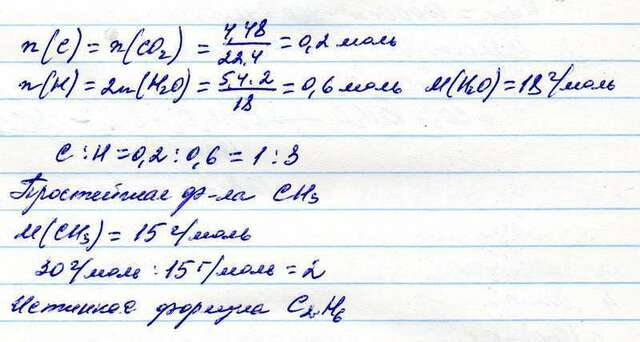 n(C) = n(CO₂) = 4,48/22,4 = 0,2 моль
n(H) = 2n(H₂O) = 5,4·2/18 = 0,6 моль M(H₂O) = 18 г/моль
C : H = 0,2 : 0,6 = 1 : 3
Простейшая ф-ла CH₃
M(CH₃) = 15 г/моль
30 г/моль : 15 г/моль = 2
Истинная формула C₂H₆